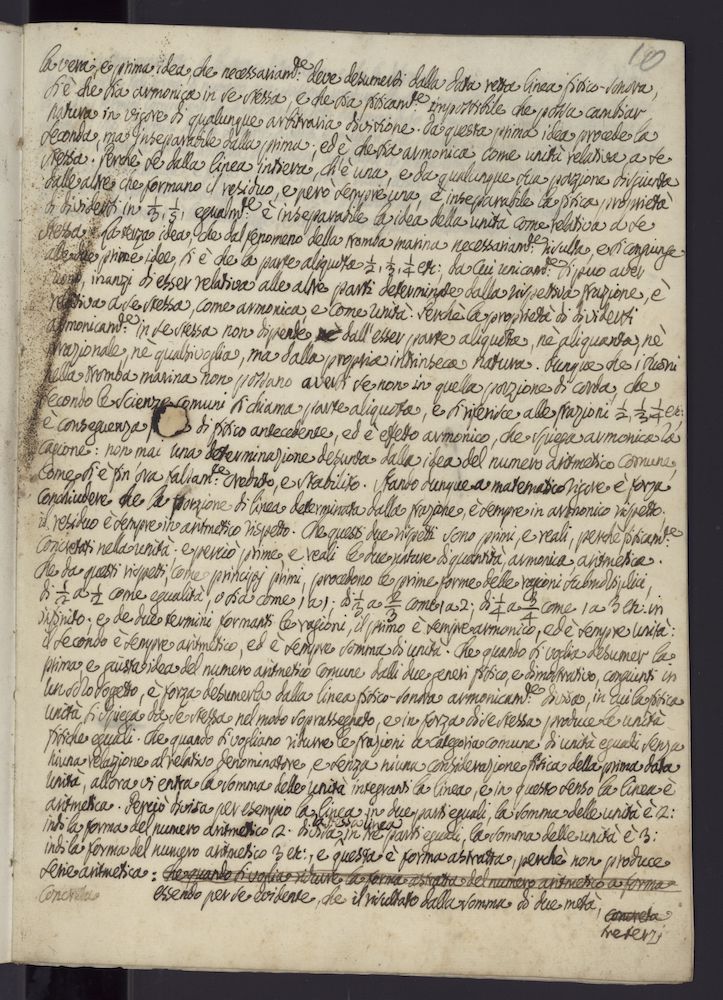 180
la vera, e prima idea, che necessariam.te deve desumersi dalla data retta linea fisico-sonora,
si è che sia armonica in se stessa, e che sia fisicam.te impossibile che possa cambiar
natura in vigore di qualunque arbitraria divisione. Da questa prima idea procede la
seconda, ma inseparabile dalla prima, ed è che sia armonica come unità relativa a se
stessa. Perchè se dalla linea intiera, ch'è una, e da qualunque sua porzione disgiunta
dalle altre che formano il residuo, e però sempre una, è inseparabile la fisica proprietà
di dividersi in 1/2, 1/3, egualm.te è inseparabile la idea della unità come relativa a se
stessa. La terza idea, che dal fenomeno della tromba marina necessariam.te risulta, e si congiunge
alle due prime idee, si è che la parte aliquota 1/2, 1/3, 1/4 etc: da cui unicam.te si può aver
suono, inanzi di esser relativa alle altre parti determinate dalla rispettiva frazione, è
relativa a se stessa, come armonica, e come unità. Perchè la proprietà di dividersi
armonicam.te in se stessa non dipende dall'esser parte aliquota, nè aliquanta, nè
frazionale, nè qualsivoglia, ma dalla propria intrinseca natura. Dunque che i suoni
nella tromba marina non possano aversi se non in quella porzione di corda, che
secondo le scienze comuni si chiama parte aliquota, e si riferisce alle frazioni 1/2, 1/3, 1/4 etc:
è conseguenza di fisico antecedente, ed è effetto armonico, che spiega armonica la
cagione: non mai una determinazione desunta dalla idea del numero aritmetico comune,
come si è fin ora falsam.te creduto, e stabilito. Stando dunque a matematico rigore è forza
conchiudere che la porzione di linea determinata dalla frazione, è sempre in armonico rispetto:
il residuo è sempre in aritmetico rispetto. Che questi due rispetti sono primi, e reali, perchè fisicam.te
concretati nella unità. e perciò prime, e reali le due nature di quantità, armonica, aritmetica.
Che da questi rispetti, come principj primi, procedono le prime forme delle ragioni submultiplici,
di 1/2 a 1/2 come egualità, o sia come 1 a 1; di 1/3 a 2/3 come 1 a 2; di 1/4 a 3/4 come 1 a 3 etc: in
infinito. e de' due termini formanti le ragioni, il primo è sempre armonico, ed è sempre unità:
il secondo è sempre aritmetico, ed è sempre somma di unità. Che quando si voglia desumer la
prima, e giusta idea del numero aritmetico comune dalli due generi fisico, e dimostrativo, congiunti in
un solo sogetto, è forza desumerla dalla linea fisico-sonora armonicam.te divisa, in cui la fisica
unità si spiega da se stessa nel modo soprassegnato, e in forza di se stessa produce le unità
fisiche eguali. Che quando si vogliano ridurre le frazioni a categoria comune di unità eguali, senza
niuna relazione al relativo denominatore, e senza niuna considerazione fisica della prima data
unità, allora vi entra la somma delle unità integranti la linea, e in questo senso la linea è
aritmetica. Perciò divisa per esempio la linea in due parti eguali, la somma delle unità è 2:
indi la forma del numero aritmetico 2. divisa la stessa linea in tre parti eguali, la somma delle unità è 3:
indi la forma del numero aritmetico 3 etc:, e questa è forma astratta, perchè non produce
serie aritmetica: Che quando si voglia ridurre la forma astratta del numero aritmetico a forma
concreta essendo per se evidente, che il risultato dalla somma di due metà, concreta
tre terzi